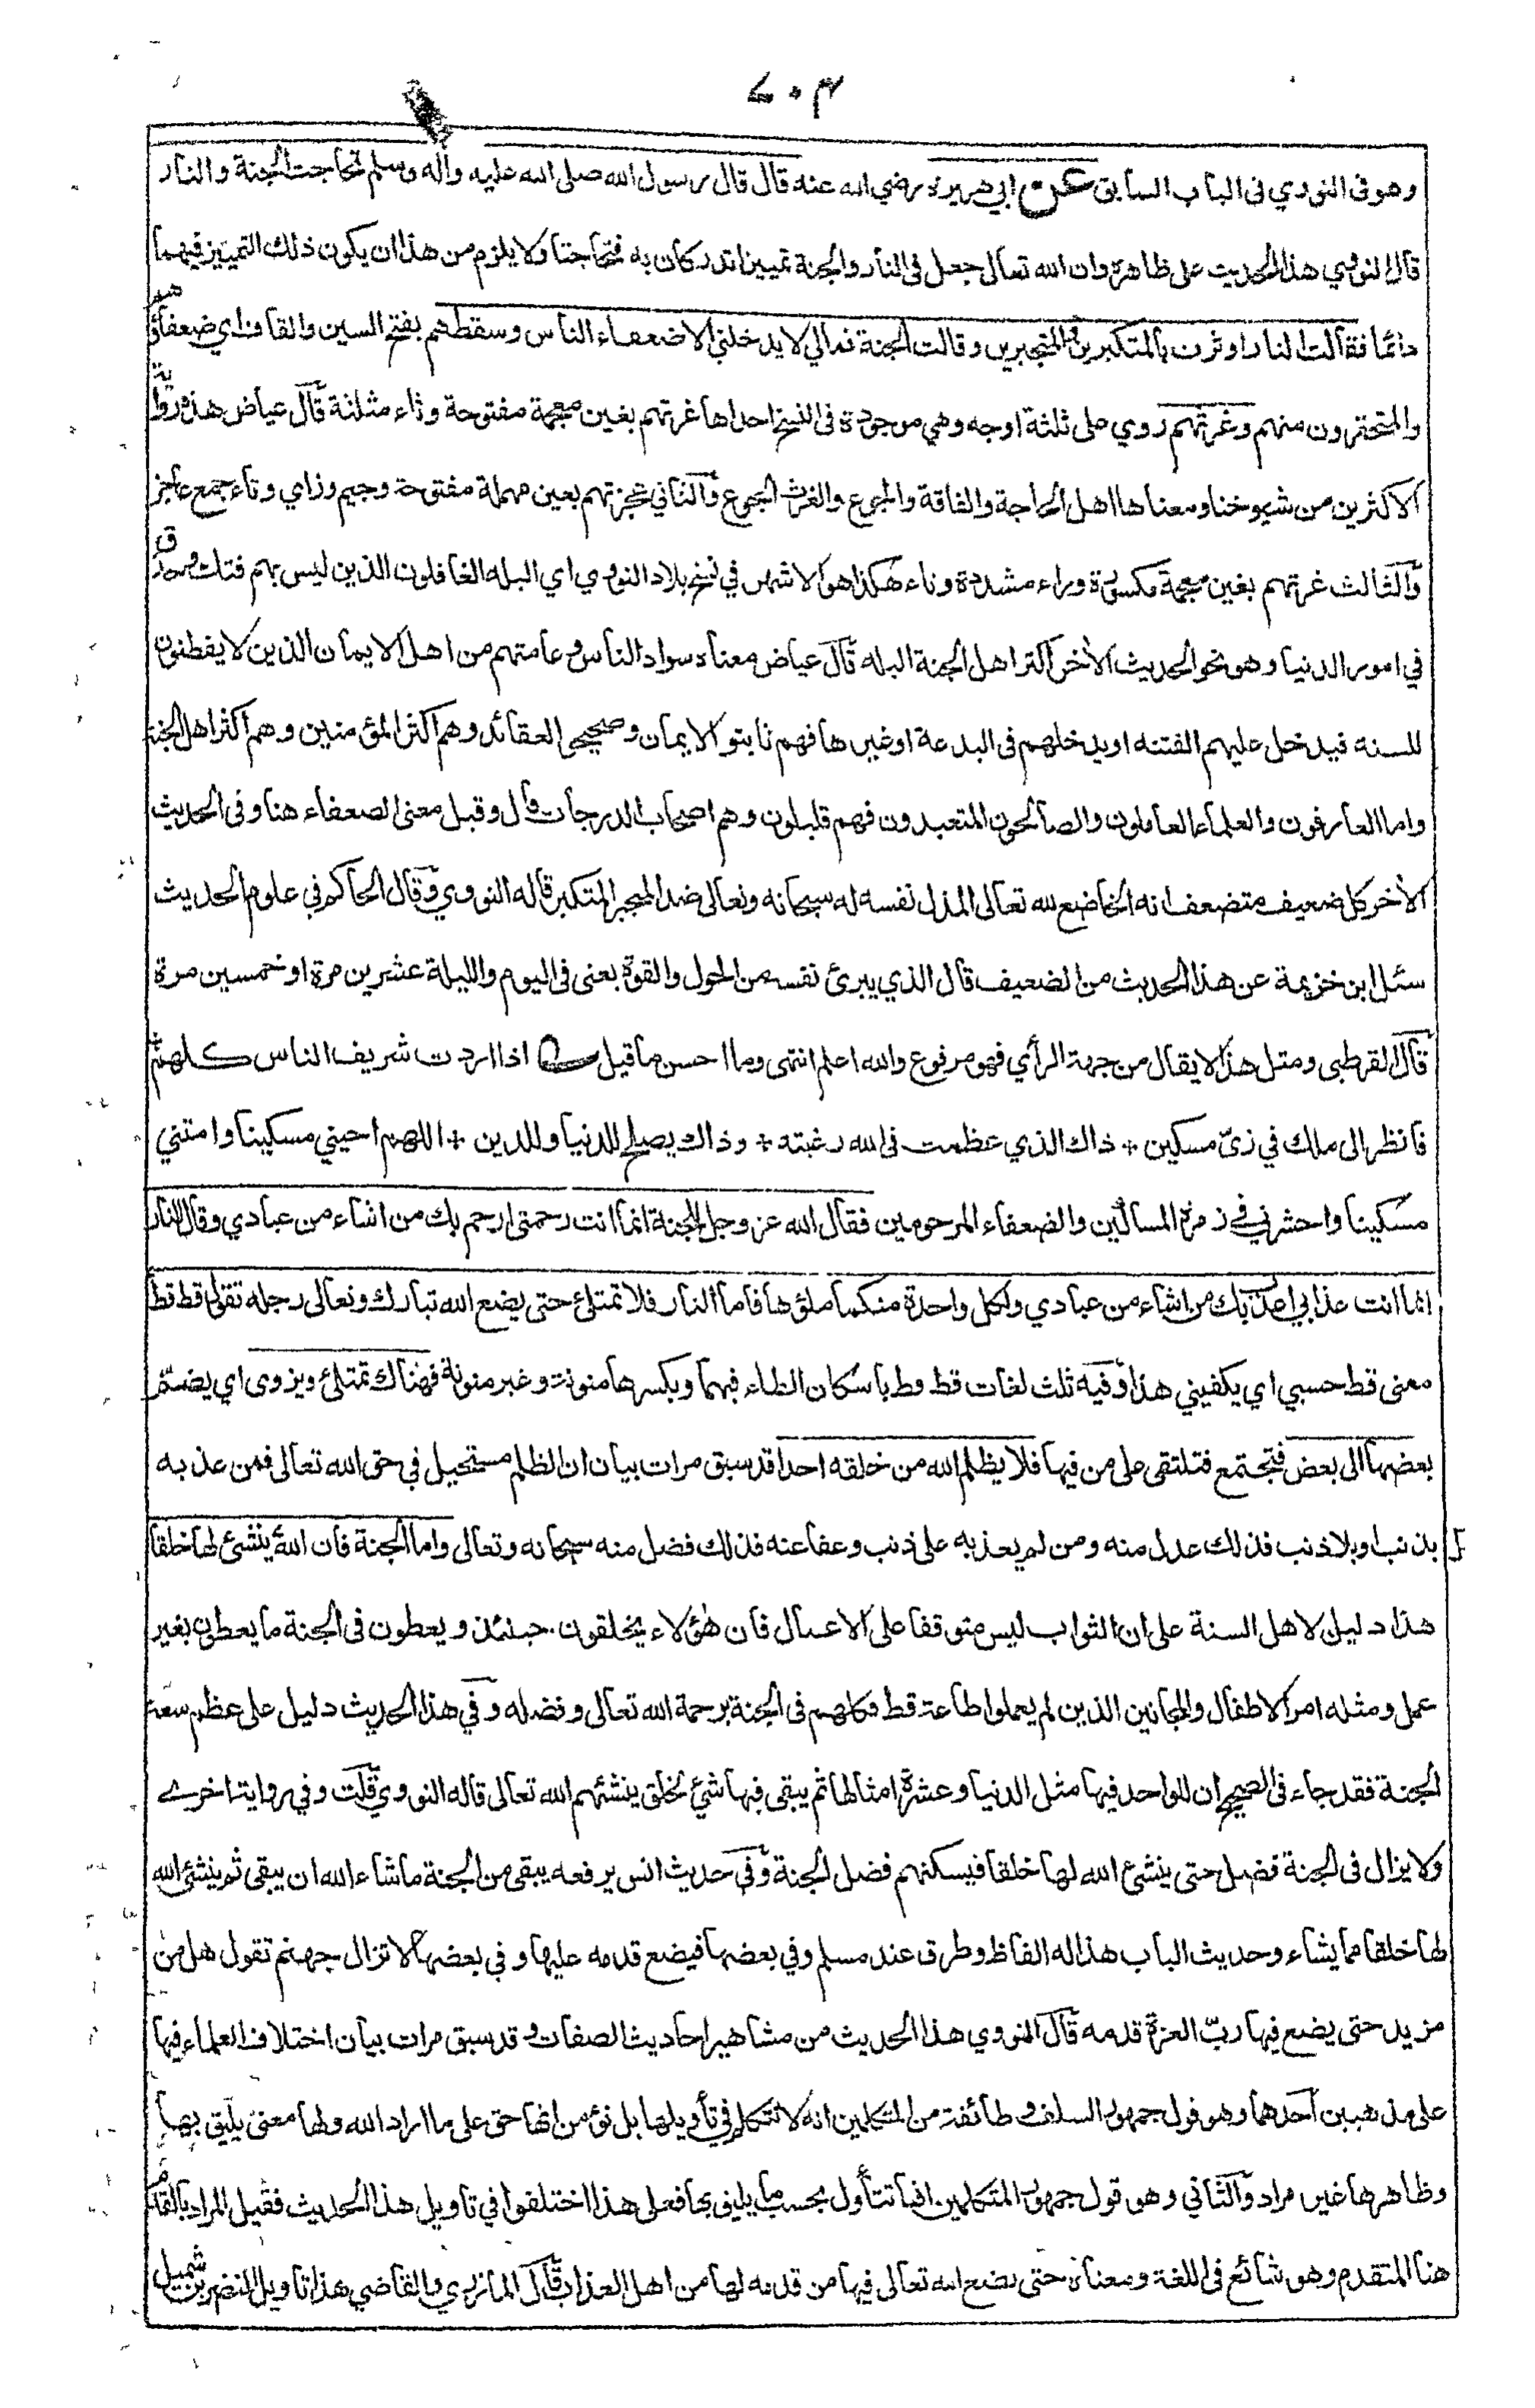 ٧٠٣
وهو في النووي في الباب السابق عن ابي هريرة رضي الله عنه قال قال رسول الله صلى الله عليه وآله وسلم تحاجت الجنة والنار
قال النووي هذا الحديث على ظاهره وان الله تعالى جعل في النار والجنة تمييزا تدركان به فتحاجتا ولا يلزم من هذا ان يكون ذلك التمييز فيهما
دائما فقالت النار اوثرت بالمتكبرين والمتجبرين وقالت الجنة فمالي لا يدخلني الا ضعفاء الناس وسقطهم بفتح السين والقاف اي ضعفاؤهم
والمتحقرون منهم وغرتهم روي على ثلثة اوجه وهي موجودة في النسخ احداها غرثهم بغين معجمة مفتوحة وثاء مثلثة قال عياض هذه رواية
الاكثرين من شيوخنا ومعناها اهل الحاجة والفاقة والجوع والغرث الجوع والثاني عجزتهم بعين مهملة مفتوحة وجيم وزاي وتاء جمع عاجز
والثالث غرتهم بغين معجمة مكسورة وراء مشددة وتاء هكذا هو الاشهر في نسخ بلاد النووي اي البله الغافلون الذين ليس بهم فتك وحذق
في امور الدنيا وهو نحو الحديث الأخر اكثر اهل الجنة البله قال عياض معناه سواد الناس وعامتهم من اهل الايمان الذين لا يفطنون
للسنه فيدخل عليهم الفتنه او يدخلهم في البدعة او غيرها فهم ثابتو الايمان وصحيحي العقائد وهم اكثر المؤمنين وهم اكثر اهل الجنة
واما العارفون والعلماء العاملون والصالحون المتعبدون فهم قليلون وهم اصحاب الدرجات قال وقيل معنى الضعفاء هنا وفي الحديث
الأخر كل ضعيف متضعف انه الخاضع لله تعالى المذل نفسه له سبحانه وتعالى ضد المتجبر المتكبر قاله النووي وقال الحاكم في علوم الحديث
سئل ابن خزيمة عن هذا الحديث من الضعيف قال الذي يبرئ نفسه من الحول والقوة يعني في اليوم والليلة عشرين مرة او خمسين مرة
قال القرطبي ومثل هذا لا يقال من جهة الرأي فهو مرفوع والله اعلم انتهى وما احسن ما قيل اذا اردت شريف الناس كلهم
فانظر الى ملك في زيّ مسكين + ذاك الذي عظمت في الله رغبته + وذاك يصلح للدنيا وللدين + اللهم احيني مسكينا وامتني
مسكينا واحشرني في زمرة المساكين والضعفاء المرحومين فقال الله عز وجل للجنة انما انت رحمتي ارحم بك من اشاء من عبادي وقال للنار
انما انت عذابي اعذب بك من اشاء من عبادي ولكل واحدة منكما ملؤها فاما النار فلا تمتلئ حتى يضع الله تبارك وتعالى رجله تقول قط قط
معنى قط حسبي اي يكفيني هذا وفيه ثلث لغات قط وقط باسكان الطاء فيهما وبكسرها منونة وغير منونة فهنالك تمتلئ ويزوى اي يضم
بعضها الى بعض فتجتمع فتلتقي على من فيها فلا يظلم الله من خلقه احدا قد سبق مرات بيان ان الظلم مستحيل في حق الله تعالى فمن عذبه
بذنب او بلا ذنب فذلك عدل منه ومن لم يعذبه على ذنب وعفا عنه فذلك فضل منه سبحانه وتعالى واما الجنة فان الله ينشئ لها خلقا
هذا دليل لاهل السنة على ان الثواب ليس متوقفا على الاعمال فان هؤلاء يخلقون حينئذ ويعطون في الجنة ما يعطون بغير
عمل ومثله امر الاطفال والمجانين الذين لم يعملوا طاعة قط فكلهم في الجنة برحمة الله تعالى وفضله وفي هذا الحديث دليل على عظم سعة
الجنة فقد جاء في الصحيح ان للواحد فيها مثل الدنيا وعشرة امثالها ثم يبقى فيها شئ لخلق ينشئهم الله تعالى قاله النووي قلت وفي رواية اخرى
ولا يزال في الجنة فضل حتى ينشئ الله لها خلقا فيسكنهم فضل الجنة وفي حديث انس يرفعه يبقى من الجنة ما شاء الله ان يبقى ثم ينشئ الله
لها خلقا مما يشاء وحديث الباب هذا له الفاظ وطرق عند مسلم وفي بعضها فيضع قدمه عليها وفي بعضها لا تزال جهنم تقول هل من
مزيد حتى يضع فيها ربّ العزة قدمه قال النووي هذا الحديث من مشاهير احاديث الصفات وقد سبق مرات بيان اختلاف العلماء فيها
على مذهبين احدهما وهو قول جمهور السلف وطائفة من المتكلمين انه لا نتكلم في تأويلها بل نؤمن انها حق على ما اراد الله ولها معنى يليق بها
وظاهرها غير مراد والثاني وهو قول جمهور المتكلمين انها تتأول بحسب ما يليق بها فعلى هذا اختلفوا في تاويل هذا الحديث فقيل المراد بالقدم
هنا المتقدم وهو شائع في اللغة ومعناه حتى يضع الله تعالى فيها من قدمه لها من اهل العذاب قال المازري والقاضي هذا تاويل النضر بن شميل